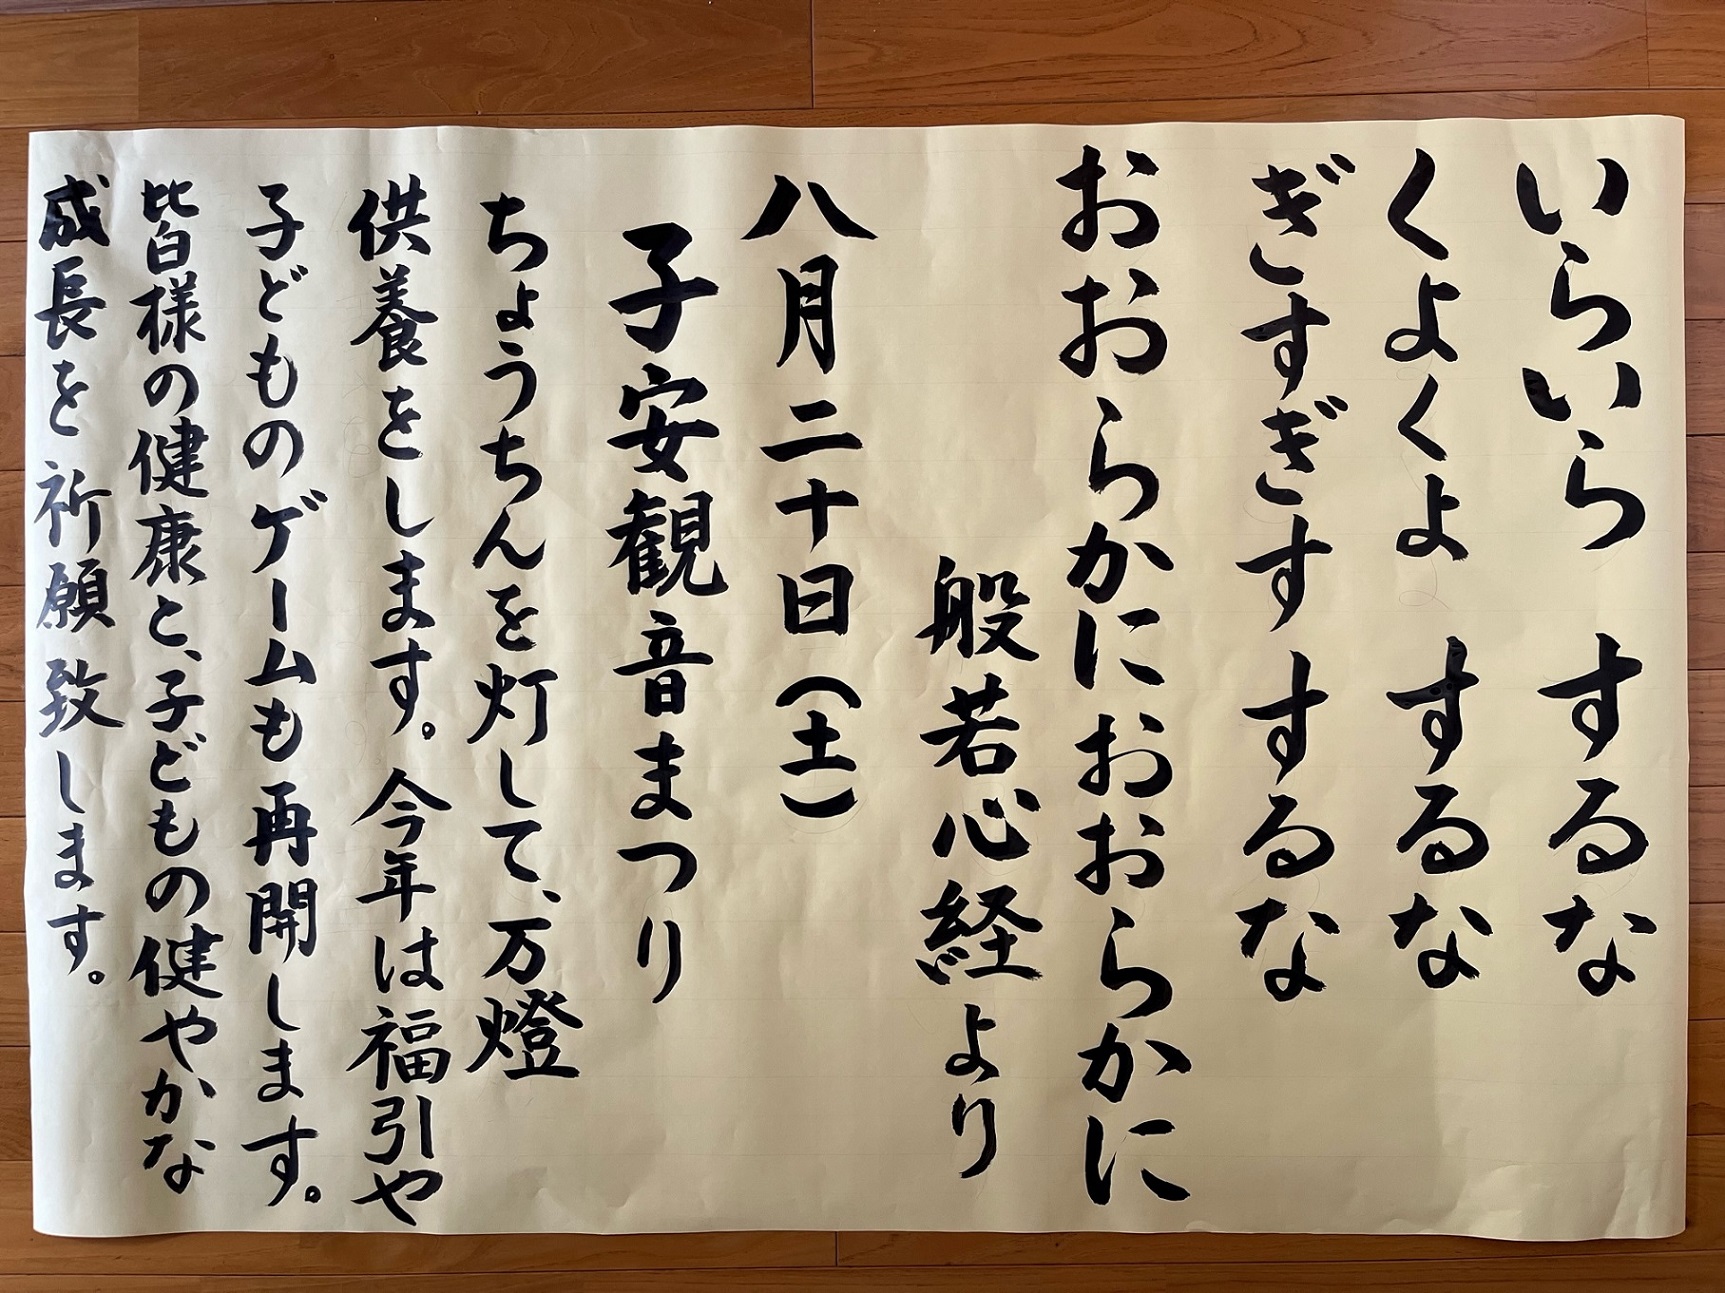 いらいら するな
くよくよ するな
ぎすぎす するな
おおらかにおおらかに
般若心経より
八月二十日(土)
子安観音まつり
ちょうちんを灯して、万燈
供養をします。今年は福引や
子どものゲームも再開します。
皆様の健康と、子どもの健やかな
成長を祈願致します。